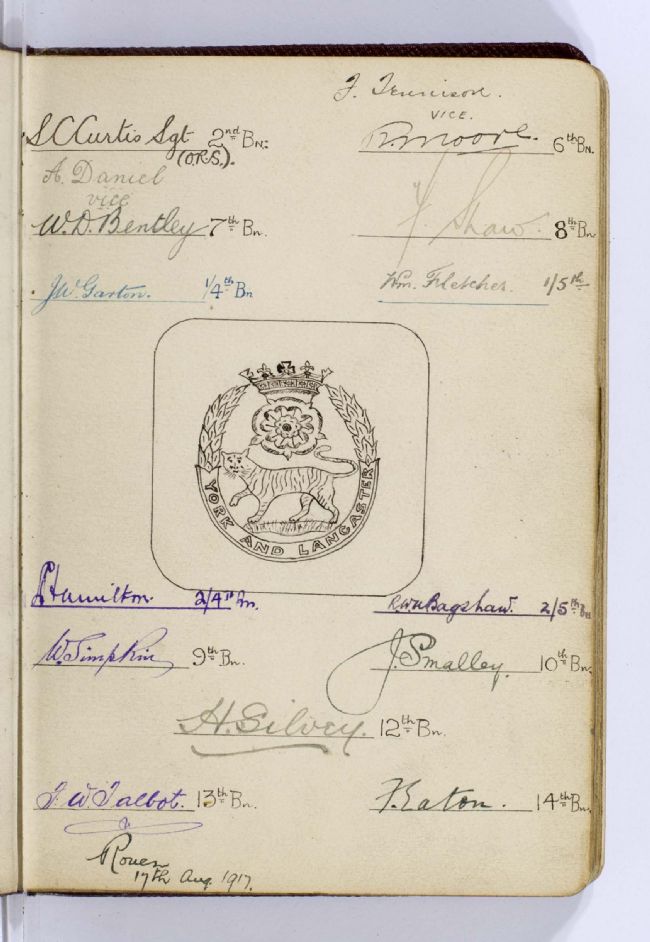 J. Tennison.
VICE.
S C Curtis Sgt 2nd Bn.
(O.R.S.).
R. Moore. 6th Bn.
A. Daniel
vice
W. D. Bentley 7th Bn.
F. Shaw. 8th Bn
J W Garton. 1/4th Bn
Wm. Fletcher. 1/5th
YORK AND LANCASTER
Hamilton. 2/4th Bn.
Bagshaw. 2/5th Bn
W. Simpkin 9th Bn.
J. Smalley. 10th Bn.
H. Silvey. 12th Bn.
J. W. Talbot. 13th Bn.
F. Eaton. 14th Bn.
Rouen
17th Aug 1917.